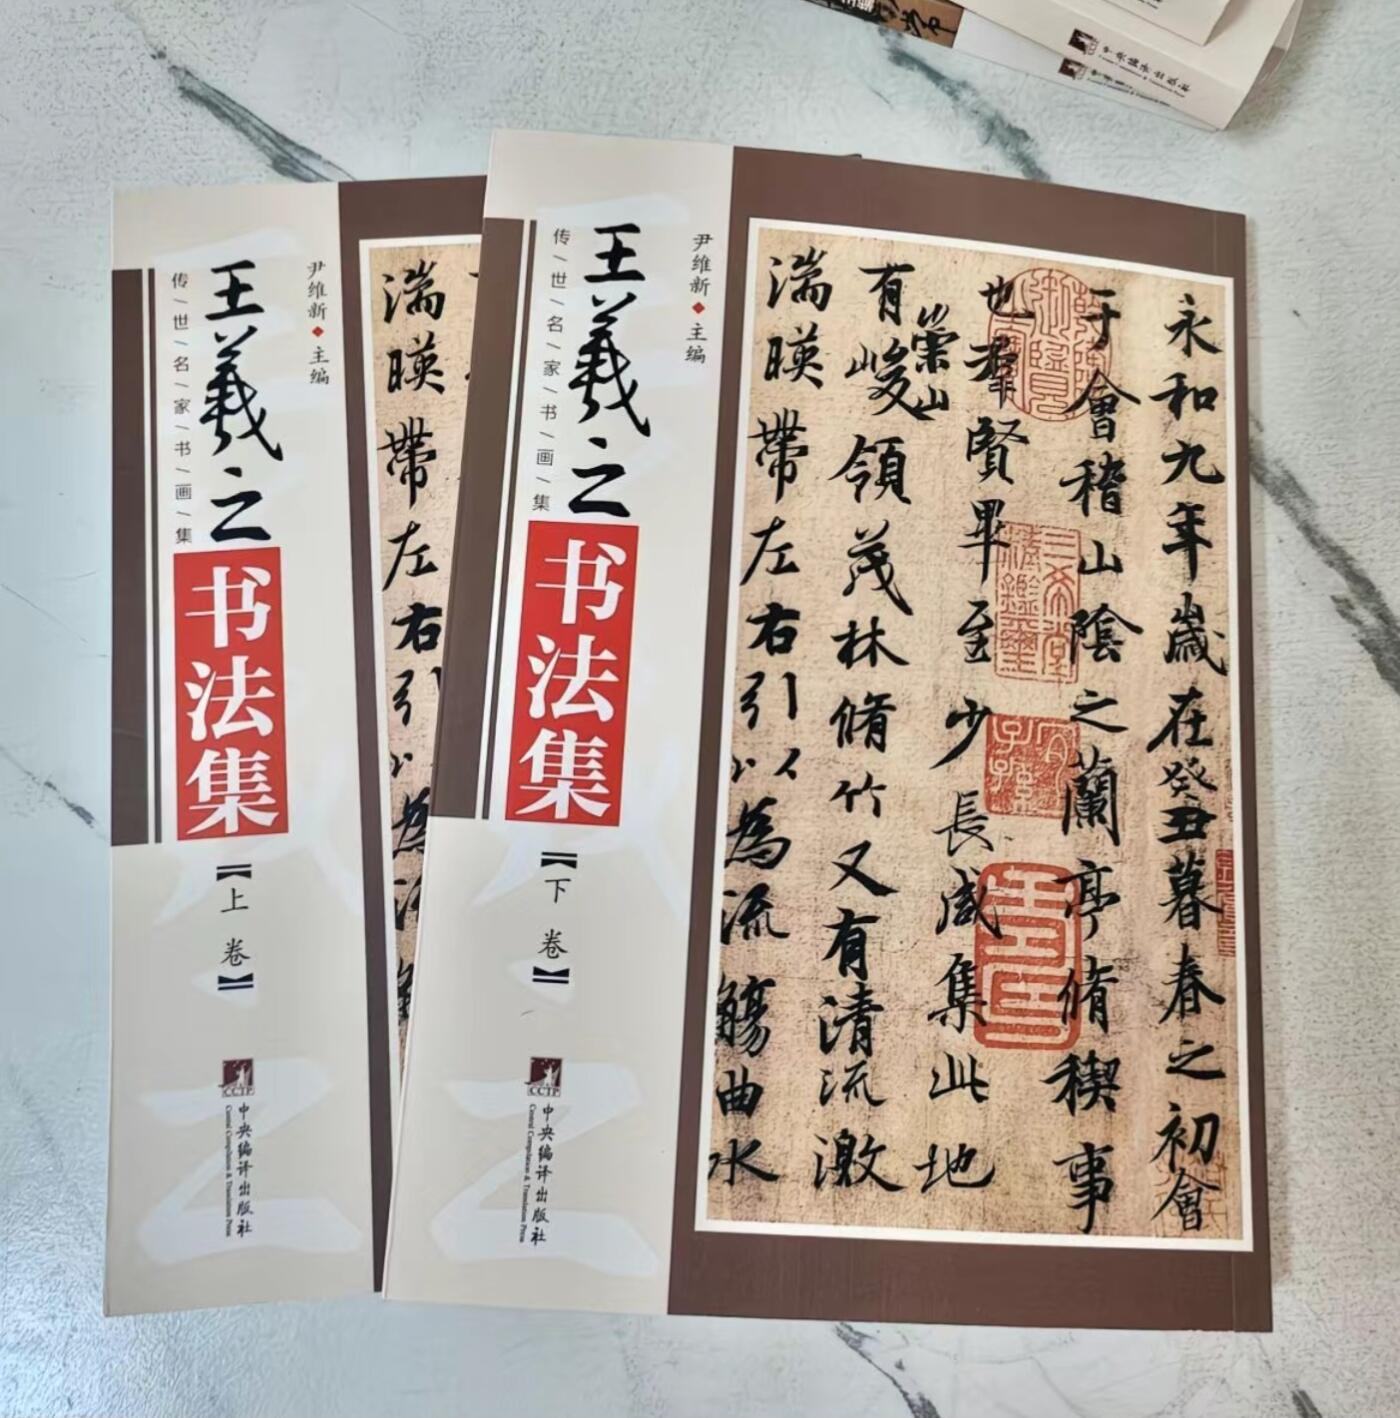 王羲之
书法集
传世名家书画集
尹维新 主编
【上卷】
CCTP
中央编译出版社
Central Compilation & Translation Press
湍
暎
帶
左
右
引
王羲之
书法集
传世名家书画集
尹维新 主编
【下卷】
CCTP
中央编译出版社
Central Compilation & Translation Press
永和九年歲在癸丑暮春之初會
于會稽山陰之蘭亭脩稧事
也羣賢畢至少長咸集此地
有崇山峻領茂林脩竹又有清流激
湍暎帶左右引以為流觴曲水
中央编译出版社